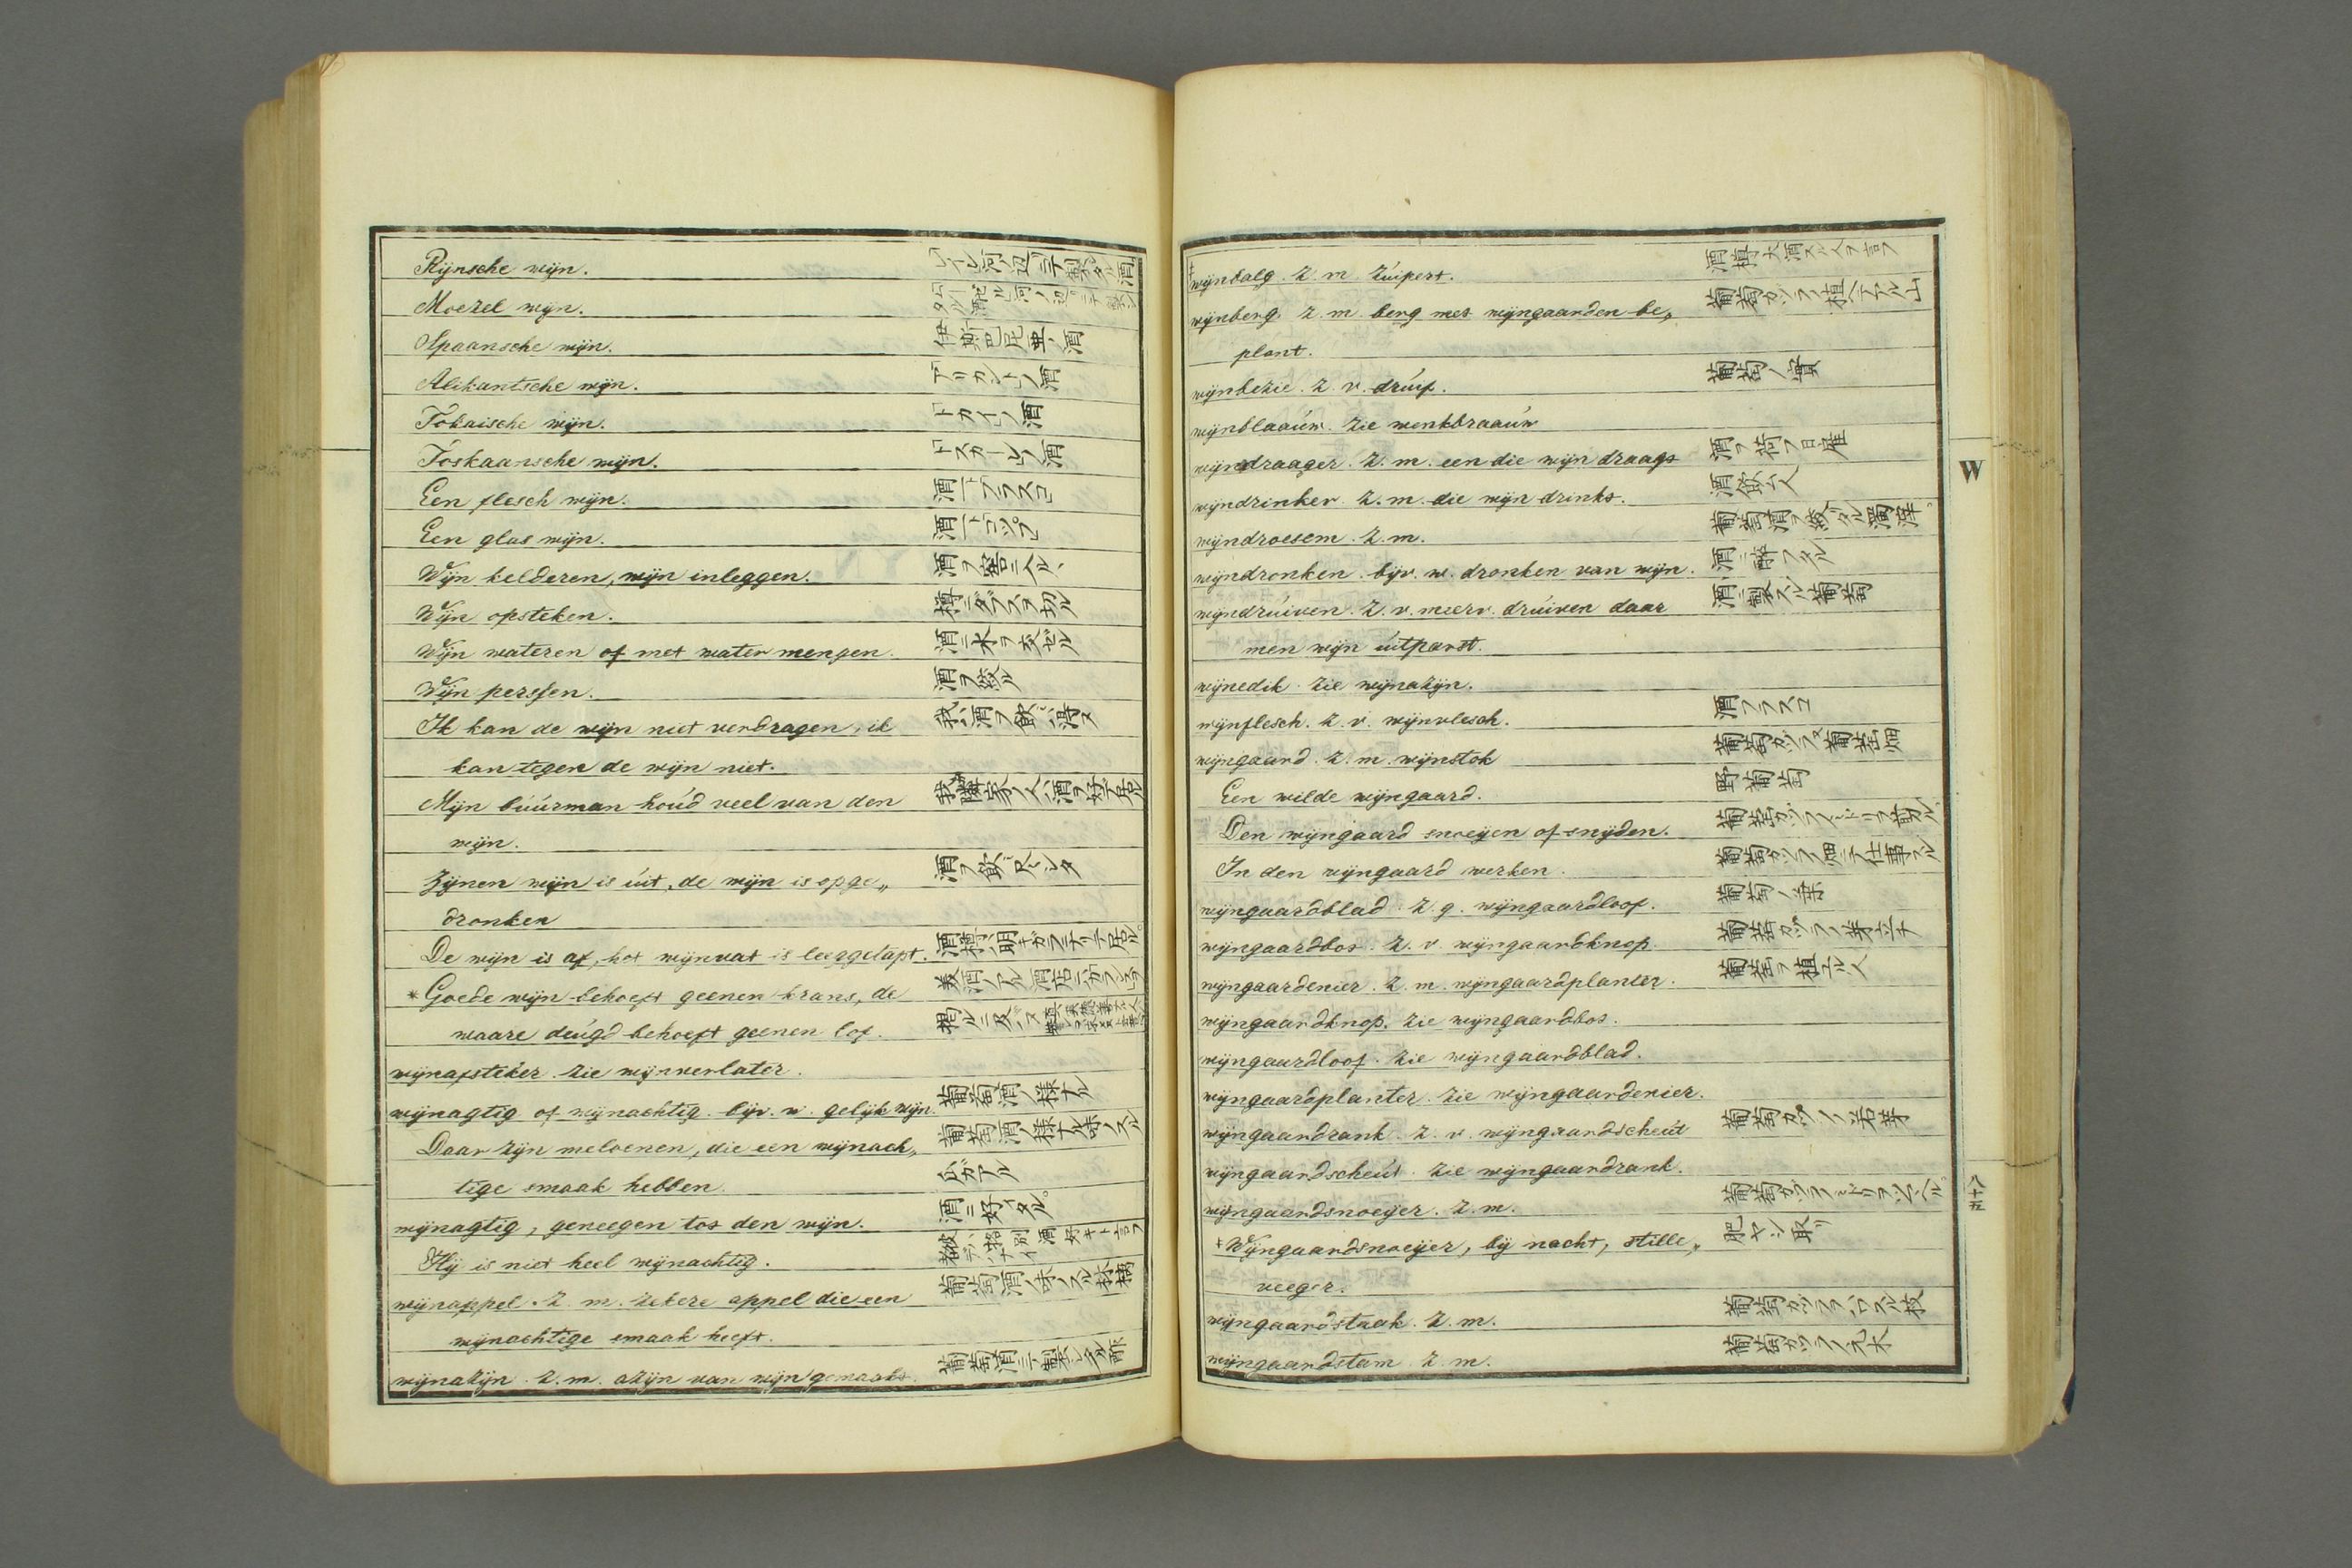 Rijnsche wijn. レイン河ノ辺ニテ製スル酒
Moezel wijn.
Spaansche wijn. 伊斯巴尼亜ノ酒
Alikantsche wijn. アリカントノ酒
Tokaische wijn. トカイノ酒
Toskaansche wijn. トスカーンノ酒
Een flesch wijn. 酒一トフラスコ
Een glas wijn. 酒一トコップ
Wijn kelderen, wijn inleggen. 酒ヲ窖ニ入ル
Wijn opsteken.
Wijn wateren of met water mengen. 酒ニ水ヲ交ゼル
Wijn perssen. 酒ヲ絞ル
Ik kan de wijn niet verdragen, ik 我ハ酒ヲ飲ミ得ヌ
kan tegen de wijn niet.
Mijn búúrman hoúd veel van den 我隣家ノ人ハ酒ヲ好テ居ル
wijn.
Zijnen wijn is úit, de wijn is opge„ 酒ヲ飲ミ尽シタ
dronken
De wijn is af, het wijnvat is leeggetapt. 酒樽ハ明キガラニナリテ居ル
* Goede wijn behoeft geenen krans, de
waare deúgd behoeft geenen lof.
wijnafsteker. zie wijnverlater.
wijnagtig of wijnachtig. bijv. w. gelijk wijn. 葡萄酒ノ様ナル
Daar zijn meloenen, die een wijnach„ 葡萄酒ノ様ナル味ノスル
tige smaak hebben. 瓜ガアル
wijnagtig, geneegen tot den wijn. 酒ニ好イタル
Hij is niet heel wijnachtig.
wijnappel. z. m. zekere appel die een 葡萄酒ノ味ノスル林檎
wijnachtige smaak heeft.
wijnazijn. z. m. azijn van wijn gemaakt. 葡萄酒ニテ製シタル酢
† wijnbalg. z. m. zúipert. 酒樽 大酒スル人ヲ言フ
wijnberg. z. m. berg met wijngaarden be„ 葡萄カツラヲ植ヘテアル山
plant.
wijnbezie. z. v. drúif. 葡萄ノ實
wijnblaaúw. zie wenkbraaúw
wijndraager. z. m. een die wijn draagt 酒ヲ荷フ日雇
wijndrinker. z. m. die wijn drinkt. 酒飲ム人
wijndroesem. z. m. 葡萄酒ヲ絞リタル濁滓
wijndronken. bijv. w. dronken van wijn. 酒ニ酔フタル
wijndrúiven. z. v. meerv. drúiven daar 酒ニ製スル葡萄
men wijn úitparst.
wijnedik. zie wijnazijn.
wijnflesch. z. v. wijnvlesch. 酒フラスコ
wijngaard. z. m. wijnstok 葡萄カツラ 葡萄畑
Een wilde wijngaard. 野葡萄
Den wijngaard snoeijen of snijden.
In den wijngaard werken. 葡萄カツラ畑ニテ仕事スル
wijngaardblad. z. g. wijngaardloof. 葡萄ノ葉
wijngaardbot. z. v. wijngaardknop 葡萄カツラノ芽立チ
wijngaardenier. z. m. wijngaardplanter. 葡萄ヲ植ユル人
wijngaardknop. zie wijngaardbot.
wijngaardloof. zie wijngaardblad.
wijngaardplanter. zie wijngaardenier.
wijngaardrank. z. v. wijngaardscheút 葡萄カツラノ若芽
wijngaardscheút. zie wijngaardrank.
wijngaardsnoeijer. z. m.
† Wijngaardsnoeijer, bij nacht, stille„ 肥ヤシ取リ
veeger.
wijngaardstaak. z. m.
wijngaardstam. z. m. 葡萄カツラノ元木
W